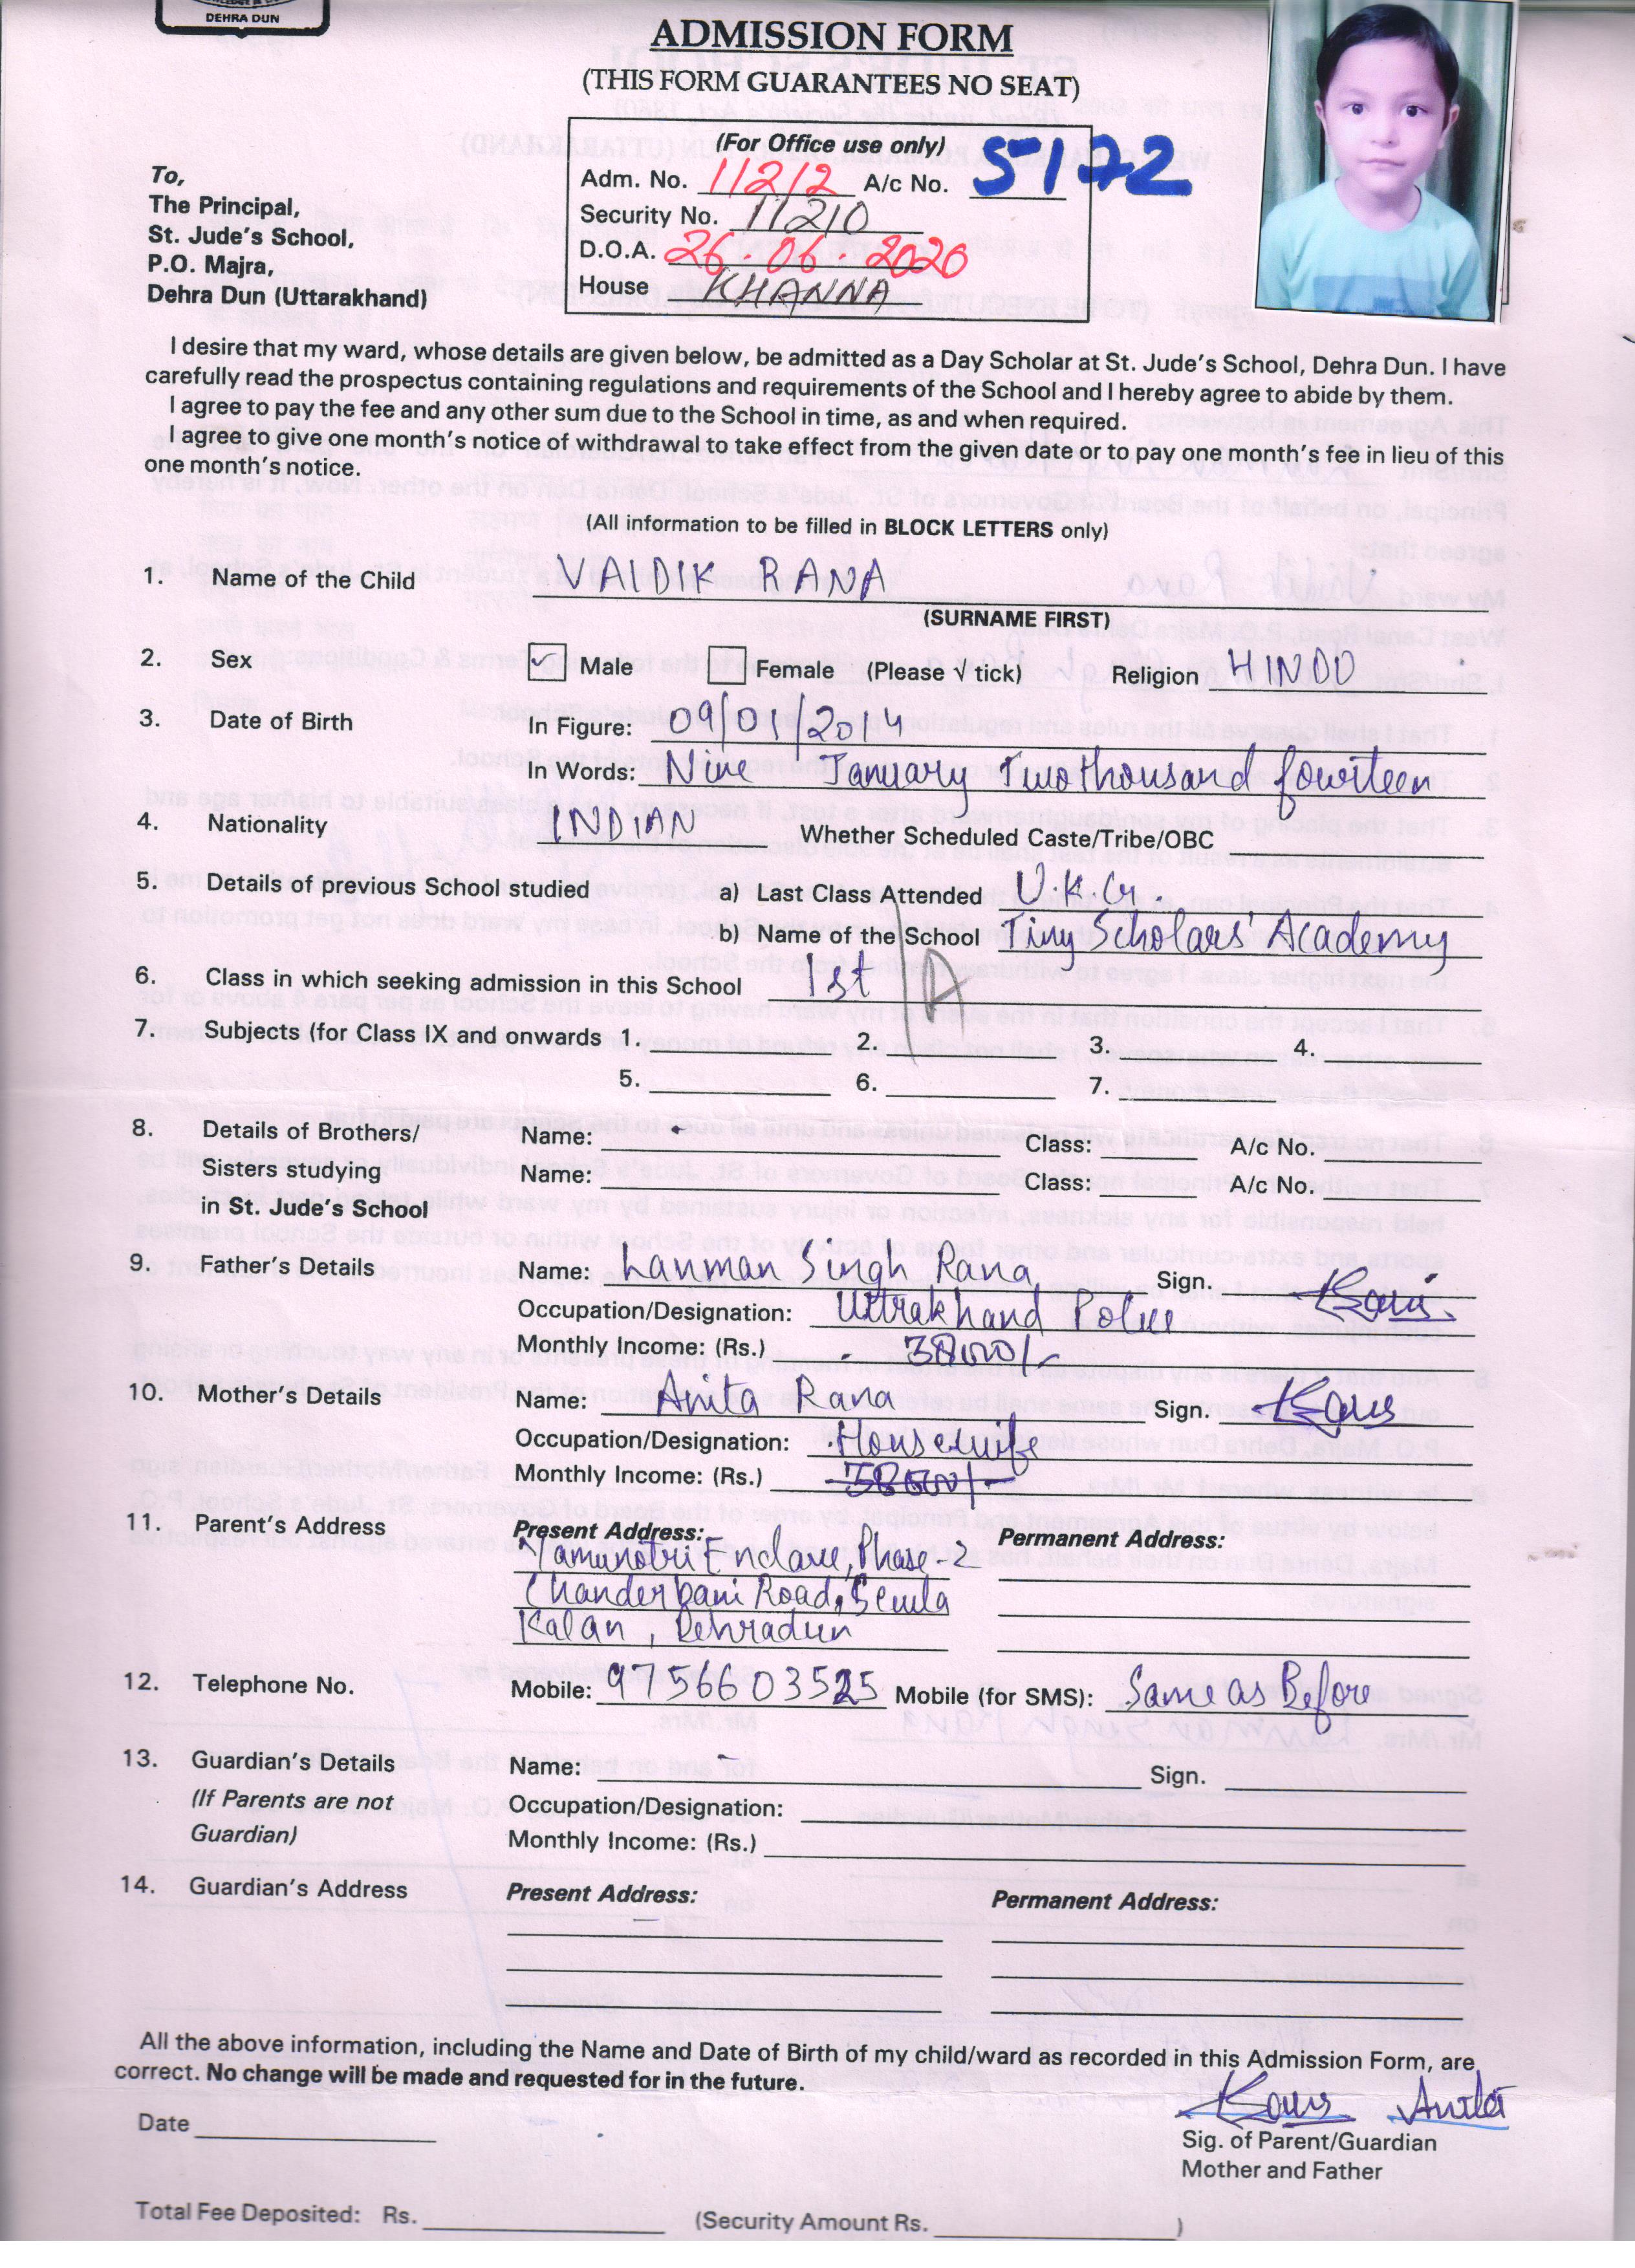 DEHRA DUN
ADMISSION FORM
(THIS FORM GUARANTEES NO SEAT)
(For Office use only)
Adm. No. 11212 A/c No. 5172
Security No. 11210
D.O.A. 26.06.2020
House KHANNA
To,
The Principal,
St. Jude's School,
P.O. Majra,
Dehra Dun (Uttarakhand)
I desire that my ward, whose details are given below, be admitted as a Day Scholar at St. Jude's School, Dehra Dun. I have
carefully read the prospectus containing regulations and requirements of the School and I hereby agree to abide by them.
I agree to pay the fee and any other sum due to the School in time, as and when required.
I agree to give one month's notice of withdrawal to take effect from the given date or to pay one month's fee in lieu of this
one month's notice.
(All information to be filled in BLOCK LETTERS only)
1. Name of the Child VAIDIK RANA
(SURNAME FIRST)
2. Sex ✓ Male Female (Please √ tick) Religion HINDU
3. Date of Birth In Figure: 09/01/2014
In Words: Nine January Twothousand fourteen
4. Nationality INDIAN Whether Scheduled Caste/Tribe/OBC
5. Details of previous School studied a) Last Class Attended U.K.G.
b) Name of the School Tiny Scholars' Academy
6. Class in which seeking admission in this School 1st A
7. Subjects (for Class IX and onwards 1. 2. 3. 4.
5. 6. 7.
8. Details of Brothers/ Name: Class: A/c No.
Sisters studying Name: Class: A/c No.
in St. Jude's School
9. Father's Details Name: Lanman Singh Rana Sign.
Occupation/Designation: Uttrakhand Police
Monthly Income: (Rs.) 38000/-
10. Mother's Details Name: Anita Rana Sign.
Occupation/Designation: Housewife
Monthly Income: (Rs.)
11. Parent's Address Present Address: Permanent Address:
Yamunotri Enclave, Phase-2
Chanderbani Road, Sewla
Kalan, Dehradun
12. Telephone No. Mobile: Mobile (for SMS): Same as Before
13. Guardian's Details Name: Sign.
(If Parents are not Occupation/Designation:
Guardian) Monthly Income: (Rs.)
14. Guardian's Address Present Address: Permanent Address:
All the above information, including the Name and Date of Birth of my child/ward as recorded in this Admission Form, are
correct. No change will be made and requested for in the future.
Anita
Date
Sig. of Parent/Guardian
Mother and Father
Total Fee Deposited: Rs. (Security Amount Rs. )